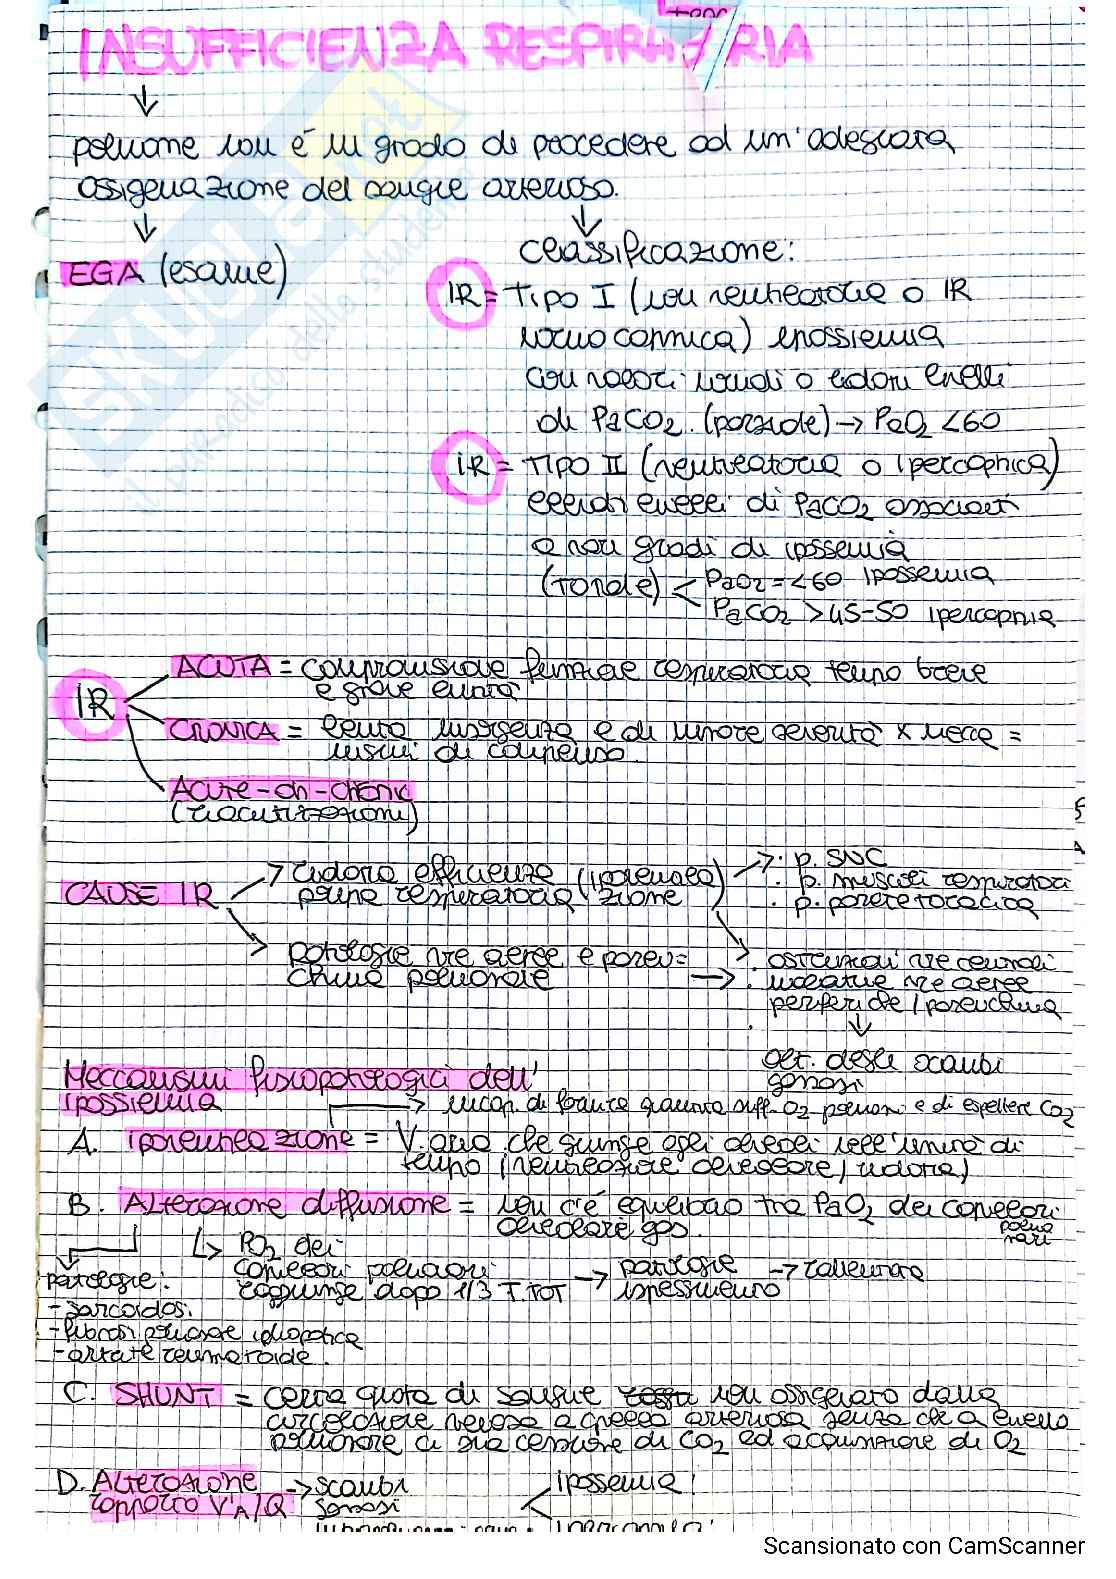 INSUFFICIENZA RESPIRATORIA
polmone non é in grado di procedere ad un'adeguata
ossigenazione del sangue arterioso.
EGA (esame)
Classificazione:
IR = Tipo I (non ventilatoria o IR
normocapnica) ipossiemia
con valori normali o ridotti livelli
di PaCO2 (parziale) → PaO2 <60
IR = TIPO II (ventilatoria o ipercapnica)
elevati livelli di PaCO2 associati
a vari gradi di ipossiemia
(totale) < PaO2 = <60 ipossiemia
PaCO2 >45-50 ipercapnia
IR
ACUTA = compromissione funzione respiratoria tempo breve
e grave entità
CRONICA = lenta insorgenza e di minore severità x mecca =
nismi di compenso.
Acute-on-chronic
(riacutizzazioni)
CAUSE IR
ridotta efficienza (ipoventila
pompa respiratoria zione)
· p. SNC
· p. muscoli respiratori
· p. parete toracica
patologie vie aeree e paren=
chima polmonare
· ostruzioni vie centrali
· malattie vie aeree
periferiche/parenchima
alt. degli scambi
gassosi
Meccanismi fisiopatologici dell'
ipossiemia
incap. di fornire quantità suff. O2 polmoni e di espellere CO2
A. ipoventilazione = V. aria che giunge agli alveoli nell'unità di
tempo (ventilazione alveolare/ridotta)
B. Alterazione diffusione = non c'é equilibrio tra PaO2 dei capillari
polmo
nari
alveolare gas.
PO2 dei
capillari polmonari
raggiunge dopo 1/3 T TOT → patologie
ispessimento
→ rallentare
patologie:
- sarcoidosi.
- fibrosi polmonare idiopatica
- artrite reumatoide.
C. SHUNT = certa quota di sangue non ossigenato dalla
circolazione venosa a quella arteriosa senza che a livello
polmonare ci sia cessione di CO2 ed acquisizione di O2
D. Alterazione
rapporto V'A/Q
→ scambi
gassosi
ipossiemia
ipercapnia
SKUOLA.net
il paradiso dello studente
Scansionato con CamScanner